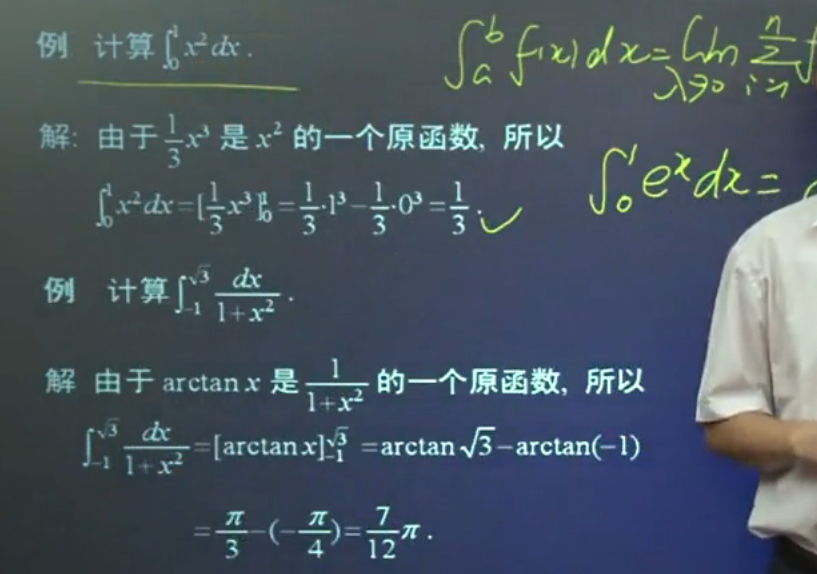 例 计算∫₀¹x²dx.
∫ₐᵇ f(x)dx = lim λ→0 Σ i=1 n f
解: 由于 1/3 x³ 是 x² 的一个原函数, 所以
∫₀¹ eˣdx =
∫₀¹x²dx=[1/3 x³]₀¹=1/3·1³−1/3·0³=1/3.
例 计算∫₋₁^√3 dx/(1+x²).
解 由于 arctan x 是 1/(1+x²) 的一个原函数, 所以
∫₋₁^√3 dx/(1+x²)=[arctan x]₋₁^√3=arctan√3−arctan(−1)
=π/3−(−π/4)=7/12 π.